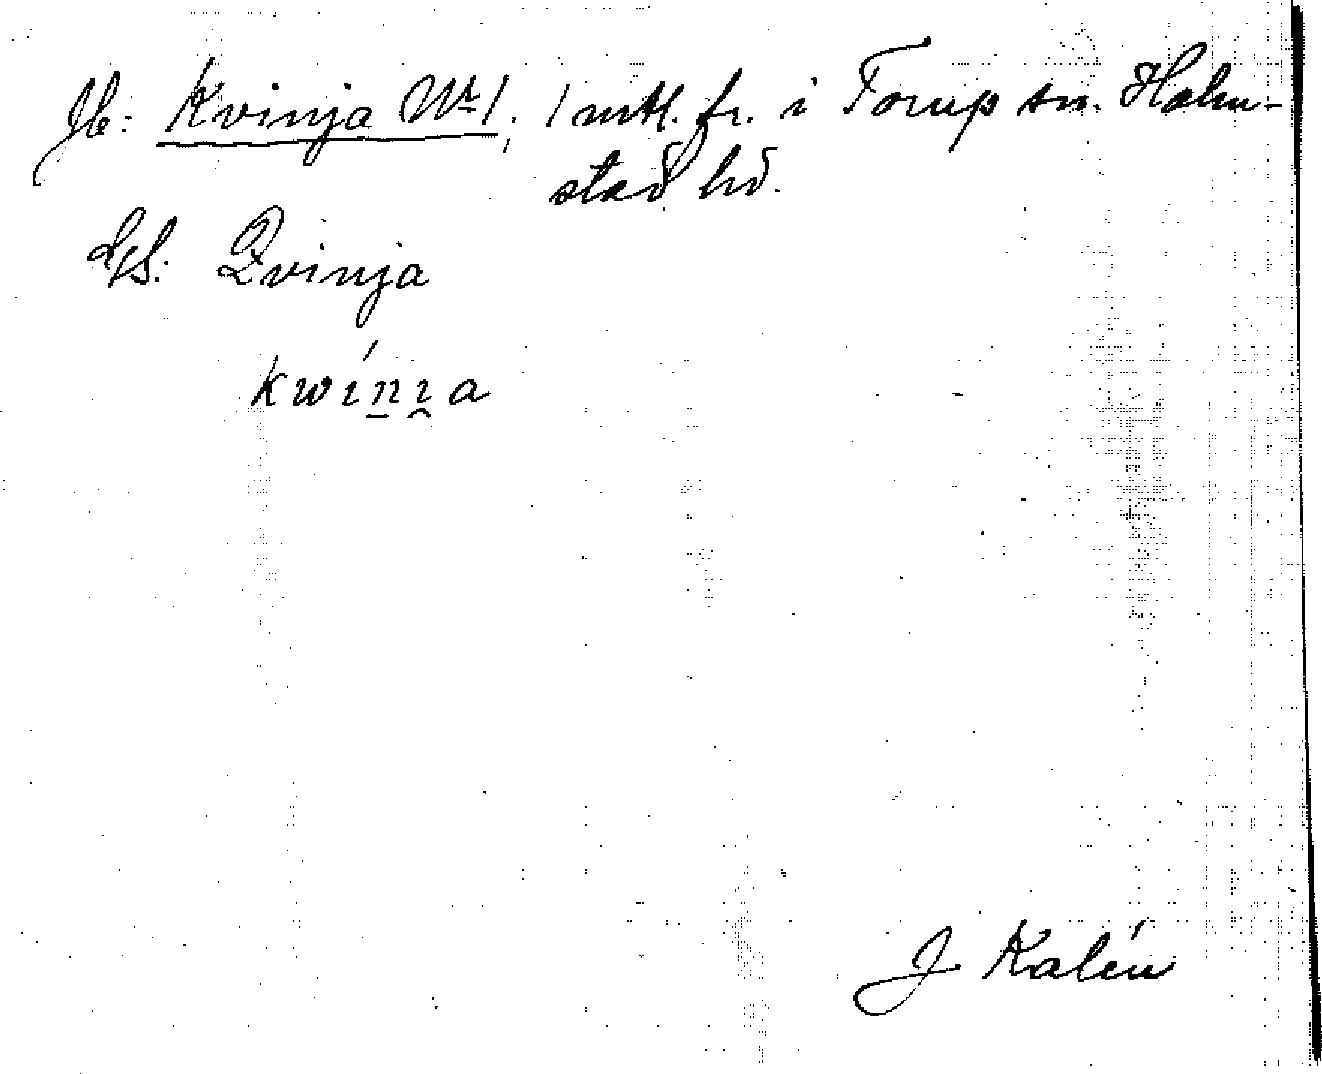 Jb: Kvinja No 1; 1 mtl. fr. i Torup sn. Halm-
stad hd.
Qvinja
kwíni̯a
J Kalén